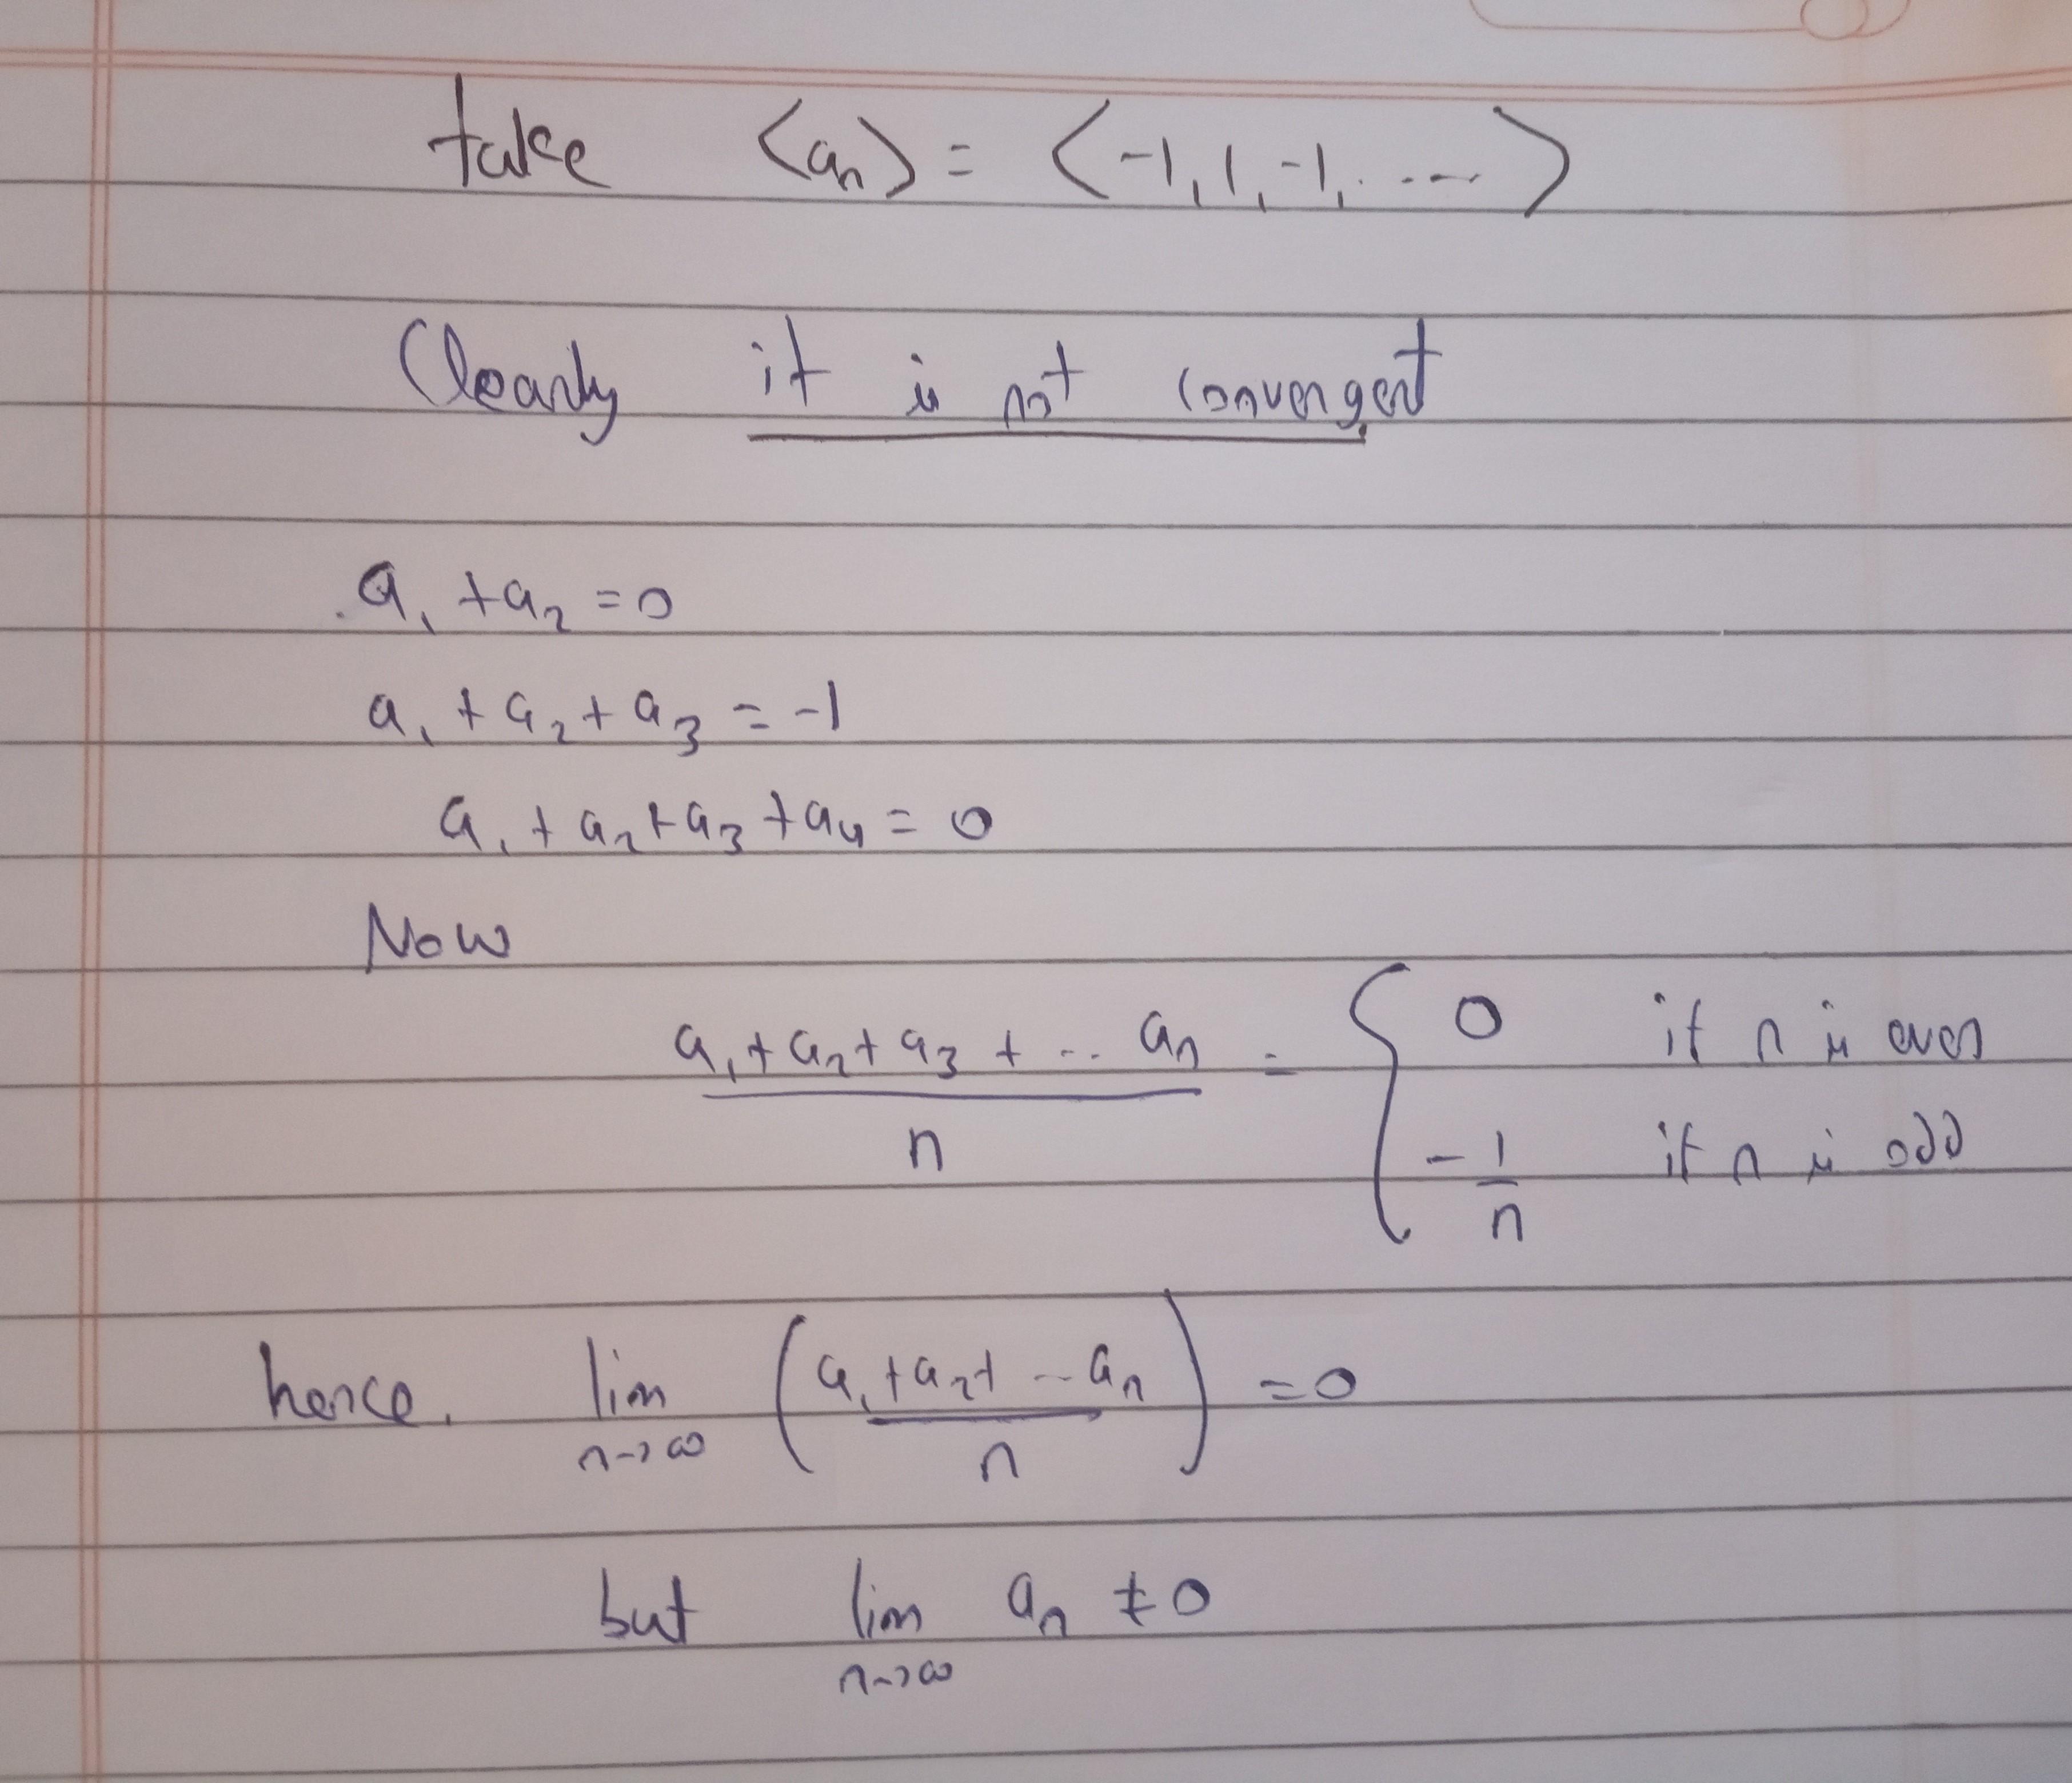 take <aₙ> = <-1, 1, -1, ..... >
Clearly it is not convergent
a₁ + a₂ = 0
a₁ + a₂ + a₃ = -1
a₁ + a₂ + a₃ + a₄ = 0
Now
(a₁ + a₂ + a₃ + ... aₙ)/n = { 0 if n is even
-1/n if n is odd
hence, lim n→∞ ((a₁ + a₂ + --- aₙ)/n) = 0
but lim n→∞ aₙ ≠ 0